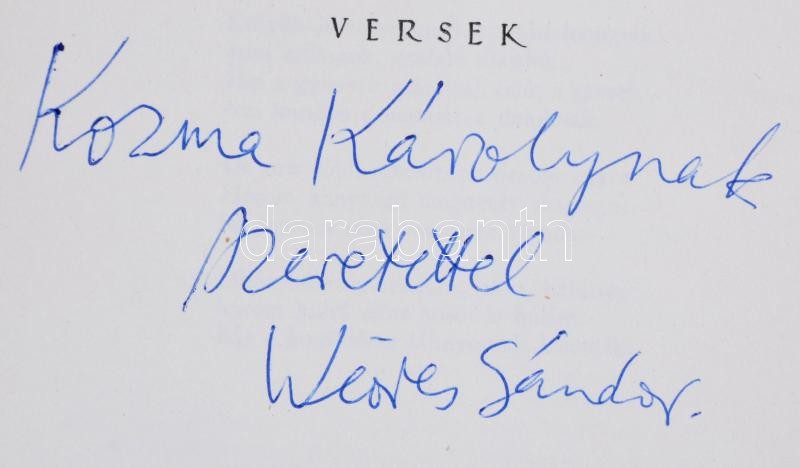 VERSEK
Kozma Károlynak
szeretettel
Weöres Sándor.
darabanth